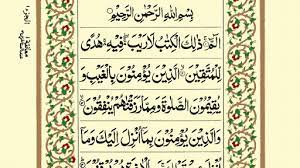 بِسْمِ اللّٰهِ الرَّحْمٰنِ الرَّحِيْمِ
الٓمّٓ ذٰلِكَ الْكِتٰبُ لَا رَيْبَ فِيْهِ هُدًى
لِّلْمُتَّقِيْنَ الَّذِيْنَ يُؤْمِنُوْنَ بِالْغَيْبِ وَ
يُقِيْمُوْنَ الصَّلٰوةَ وَمِمَّا رَزَقْنٰهُمْ يُنْفِقُوْنَ
وَالَّذِيْنَ يُؤْمِنُوْنَ بِمَآ اُنْزِلَ اِلَيْكَ وَمَآ